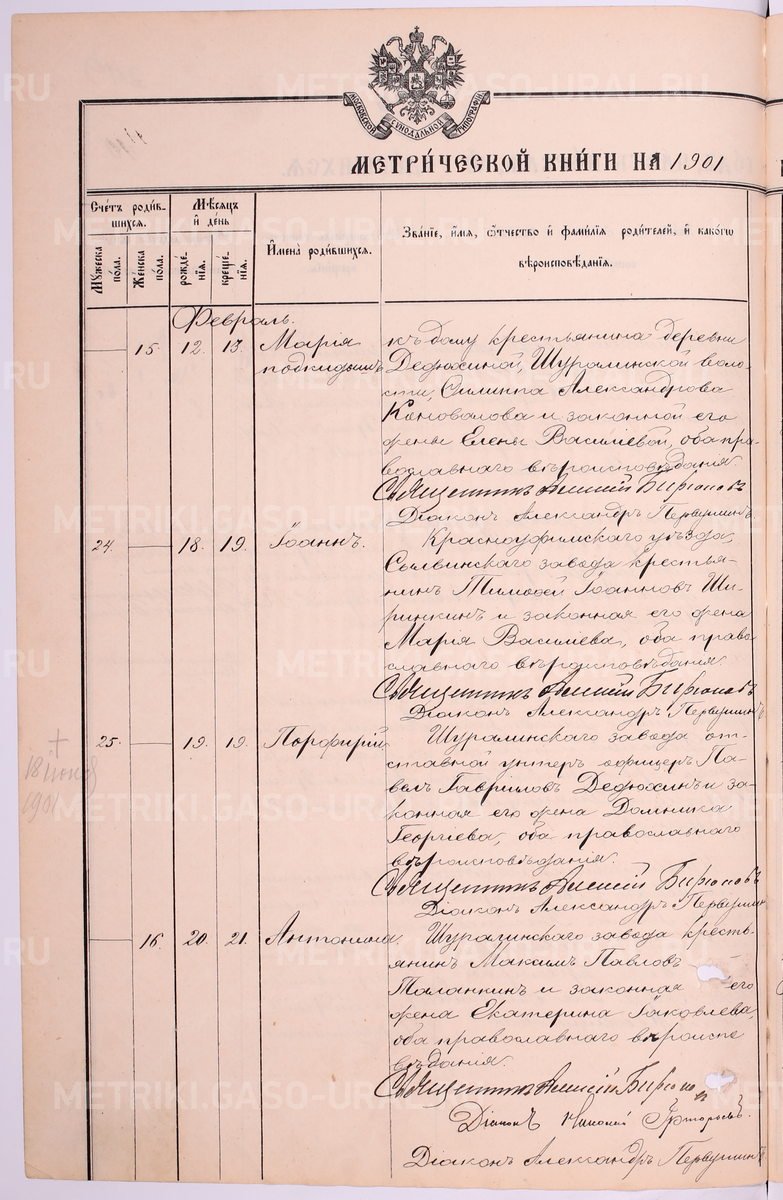 METRIKI.GASO-URAL.RU
МОСКОВСКОЙ СѴНОДАЛЬНОЙ ТИПОГРАФІИ
МЕТРИ́ЧЕСКОЙ КНИ́ГИ НА 1901
Сче́тъ роди́в-
шихся.
Мѣ́сяцъ
и҆ де́нь
Мꙋ́жеска
по́ла.
Же́нска
по́ла.
рожде́-
нїѧ.
креще́-
нїѧ.
И҆мена̀ роди́вшихся.
Зва́нїе, и҆́мѧ, ѻ҆́тчество и҆ фами́лїѧ роди́телей, и҆ како́гѡ
вѣроисповѣ́данїѧ.
Февраль.
15. 12. 13. Марія
подкидышъ
къ дому крестьянина деревни
Дедюхиной, Шуралинской воло-
сти, Филиппа Александрова
Коновалова и законной его
жены Елены Васильевой, оба пра-
вославнаго вѣроисповѣданія.
Священникъ Алексій Бирюковъ
Діаконъ Александръ Первушинъ
24. 18. 19. Іоаннъ.
Красноуфимскаго уѣзда,
Сылвинскаго завода крестья-
нинъ Тимофей Іоанновъ Ши-
ринкинъ и законная его жена
Марія Васильева, оба право-
славнаго вѣроисповѣданія.
Священникъ Алексій Бирюковъ
Діаконъ Александръ Первушинъ
18 іюня
1901
25. 19. 19. Порфирій
Шуралинскаго завода от-
ставной унтеръ офицеръ Па-
велъ Гавриловъ Дедюхинъ и за-
конная его жена Домника
Георгіева, оба православнаго
вѣроисповѣданія.
Священникъ Алексій Бирюковъ
Діаконъ Александръ Первушинъ
16. 20. 21. Антонина.
Шуралинскаго завода кресть-
янинъ Максимъ Павловъ
Таланкинъ и законная его
жена Екатерина Іаковлева,
оба православнаго вѣроиспо-
вѣданія.
Священникъ Алексій Бирюковъ
Діаконъ Николай
Діаконъ Александръ Первушинъ